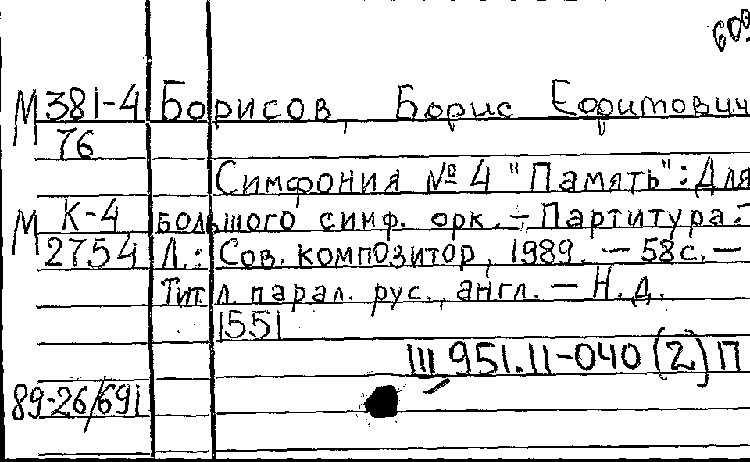 600
М 381-4 Борисов, Борис Ефимович
76
Симфония № 4 "Память": Для
М К-4 большого симф. орк. - Партитура. -
2754 Л.: Сов. композитор, 1989. - 58с. -
Тит. л. парал. рус., англ. - Н. д.
1551
Ш 951.11-040 (2) П
89-26/691